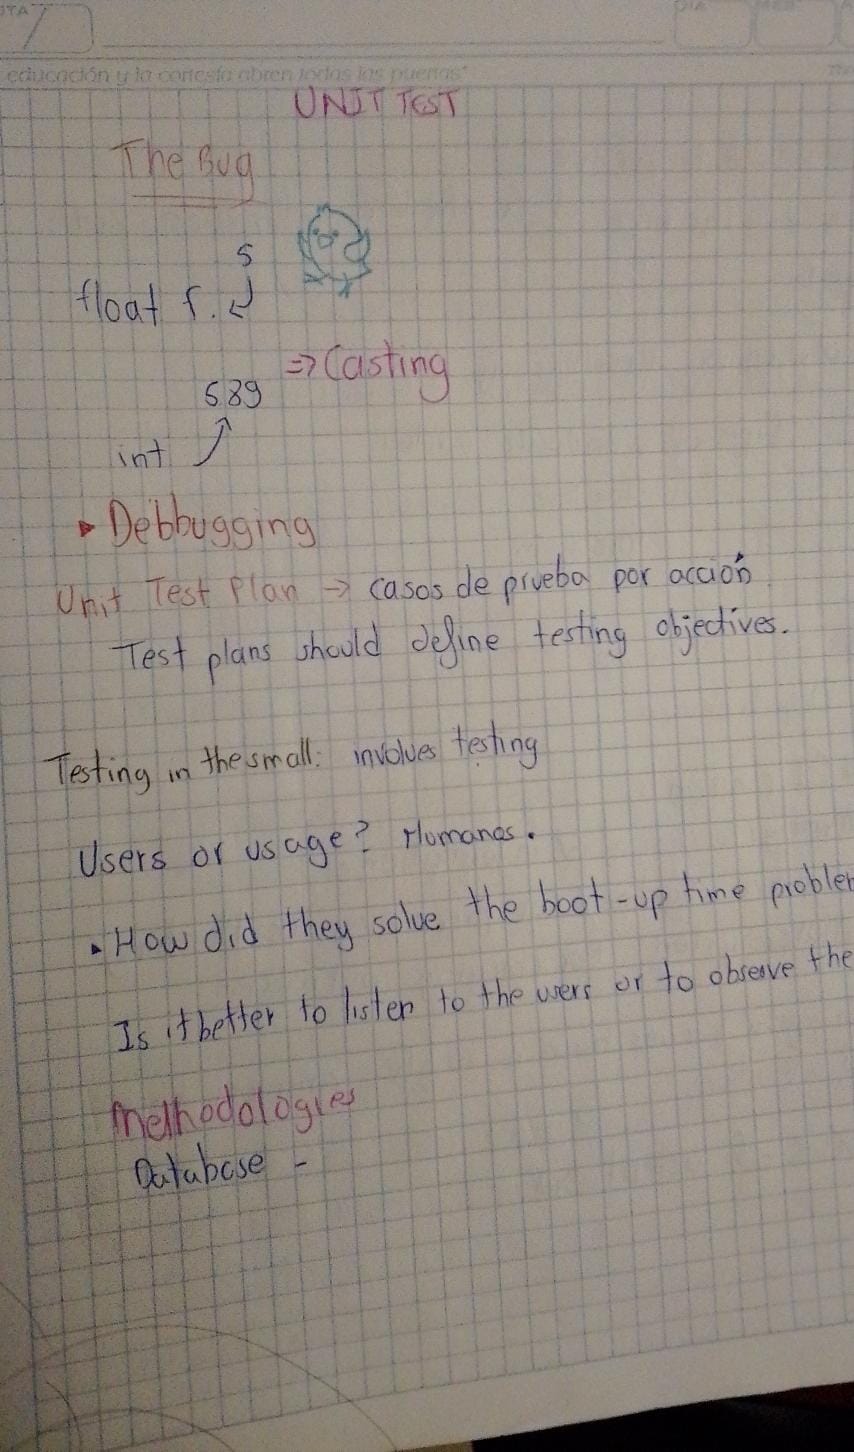 educación y la cortesía abren todas las puertas"
UNIT TEST
The Bug
5
float f.
=> Casting
5.89
int
Debbugging
Unit Test Plan → casos de prueba por acción
Test plans should define testing objectives.
Testing in the small: involves testing
Users or usage? Humanos.
• How did they solve the boot-up time problem
Is it better to listen to the users or to observe the
Methodologies
Database -